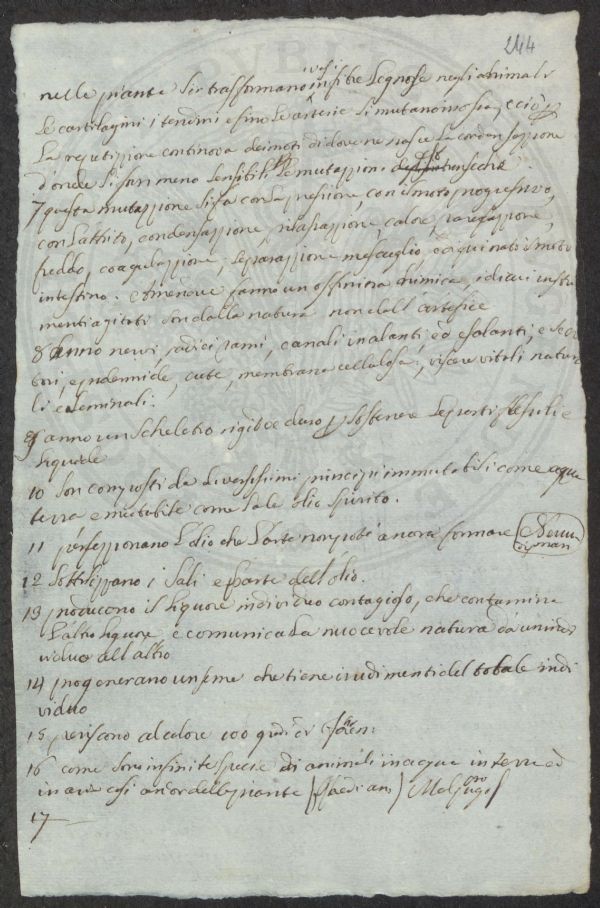 244
nelle piante si trasformano in fibre legnose negli animali
le cartilagini i tendini e sino le arterie si mutano in ossa, e ciò p
la repetizione continova dei moti di dove ne nasce la condensazione
d'onde si fan meno sensibili le mutazioni
7 questa mutazione si fa con la pressione, con il moto progressivo,
con l'attrito, condensazione, rilassazione, calore, rarefazione,
freddo, coagulazione, separazione mescuglio, e di qui nato il moto
intestino. e
menti agitati son dalla natura non dall'artefice
8 Anno nervi radici rami, canali inalanti ed esalanti, e secre
tori, epidermide, cute, membrana cellulosa, viscere vitali natura
li e seminali.
9 anno un scheletro rigido e duro p sostenere le parti flessili e
liquide
10 son composti da diversissimi principii immutabili come aqua
terra e mutabile come sale olio spirito.
11 perfezzionano l'olio che l'arte non potè ancora formare
12 sottilizzano i sali e parte dell'olio.
13 producono il liquore individuo contagioso, che contamina
l'altro liquore e comunica la nuocevole natura da un indi
viduo all'altro
14 progenerano un seme che tiene i rudimenti del totale indi
viduo
15 periscono al calore 100 gradi
16 come sono infinite specie di animali in acqua in terra ed
in aria così ancor delle piante
17